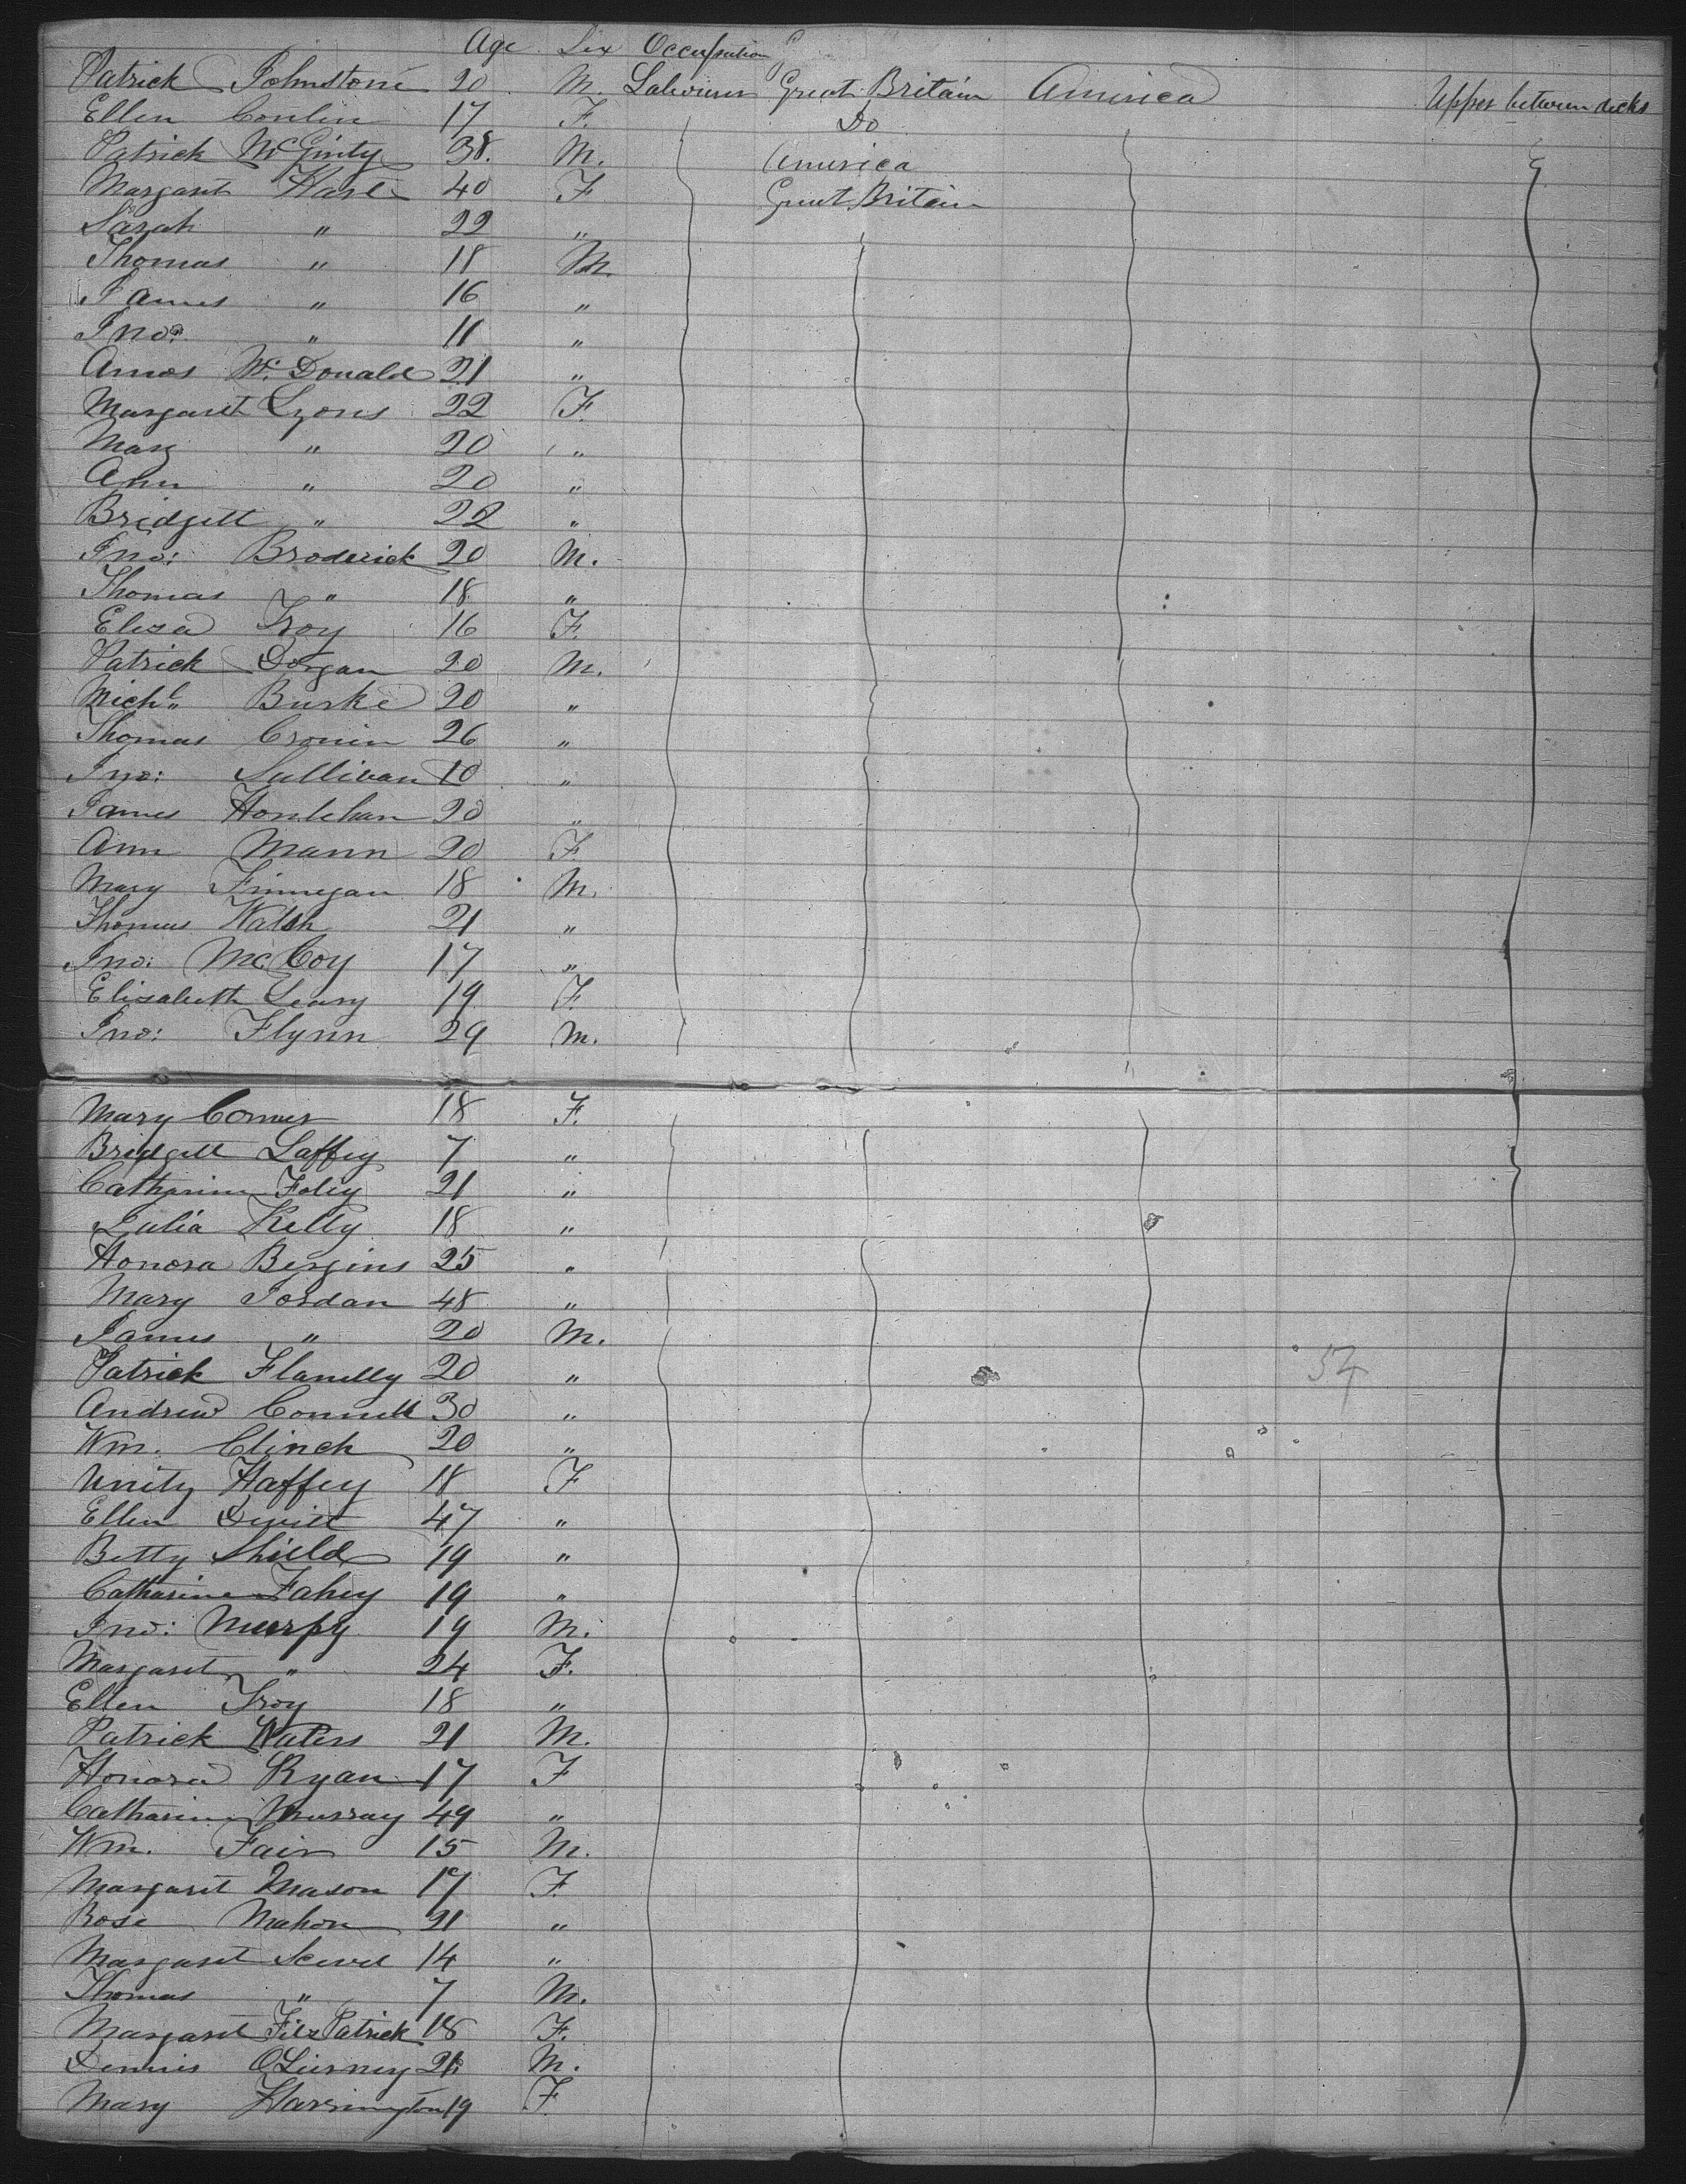 Age Sex Occupation
Patrick Johnstone 20 M. Labourer Great Britain America Upper between decks
Ellen Conlin 17 F. Do
Patrick McGinty 38. M. America
Margaret Hart 40 F Great Britain
Sarah " 22 "
Thomas " 18 M.
James " 16 "
Jno: " 11 "
Amos Mc. Donald 21 "
Margaret Lyons 22 F.
Mary " 20 "
Ann " 20 "
Bridgett " 22 "
Jno: Broderick 20 M.
Thomas " 18 "
Eliza Troy 16 F.
Patrick Dorgan 20 M.
Michl " Burke 20 "
Thomas Cronin 26 "
Jno: Sullivan 10 "
James Honlehan 20 "
Ann Mann 20 F.
Mary Finnegan 18 M.
Thomas Walsh 21 "
Jno: McCoy 17 "
Elizabeth Leary 19 F.
Jno: Flynn 29 M.
Mary Comer 18 F.
Bridgett Laffey 7 "
Catharine Foley 21 "
Julia Kelly 18 "
Honora Bergins 25 "
Mary Jordan 48 "
James " 20 M.
Patrick Flanelly 20 " 54
Andrew Connell 30 "
Wm. Clinch 20 "
Unity Haffey 18 F
Ellen Devitt 47 "
Betty Shield 19 "
Catharine Fahey 19 "
Jno: Murpy 19 M.
Margaret " 24 F.
Ellen Troy 18 "
Patrick Waters 21 M.
Honora Ryan 17 F
Catharine Murray 49 "
Wm. Fair 15 M.
Margaret Mason 17 F.
Rose Mahon 21 "
Margaret 14 "
Thomas " 7 M.
Margaret FitzPatrick 18 F.
Dennis M.
Mary Harrington 19 F.